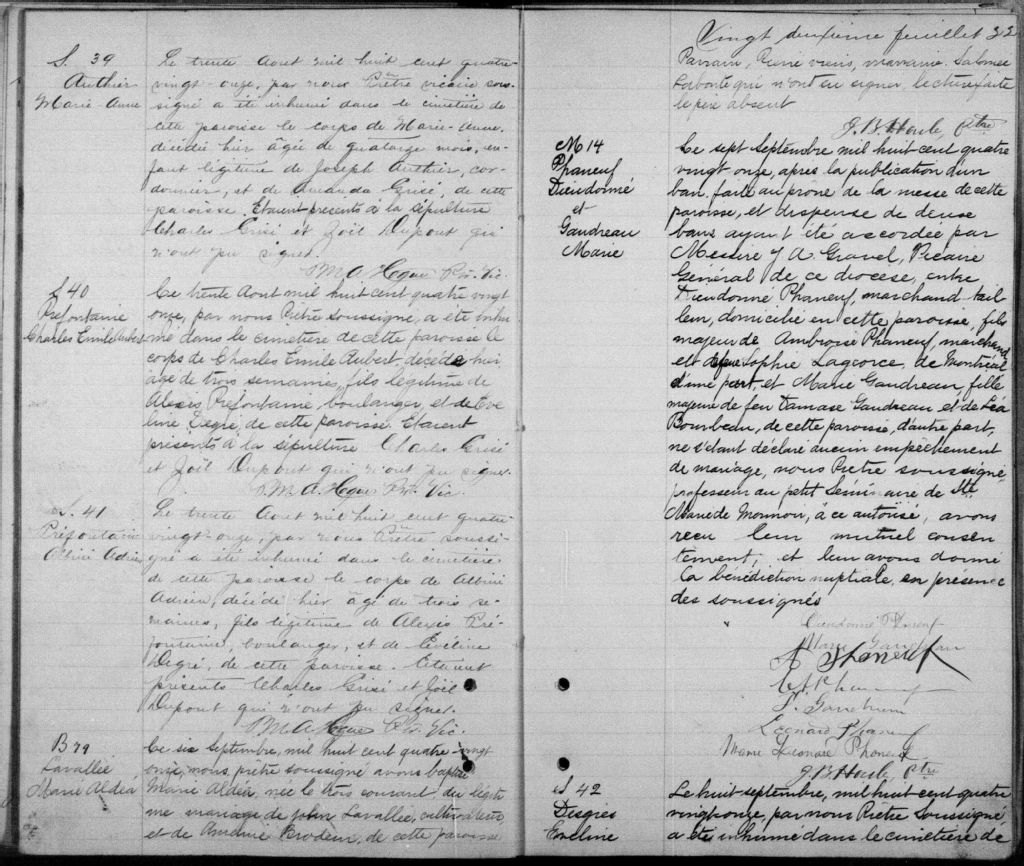 S. 39
Authier
Marie-Anne
Le trente Aout mil huit cent quatre
vingt-onze, par nous Prêtre vicaire sous-
signé a été inhumé dans le cimetière de
cette paroisse le corps de Marie-Anne,
décédée hier âgée de quatorze mois, en-
fant légitime de Joseph Authier, cor-
donnier, et de Amanda Grisé, de cette
paroisse. Etaient présents à la sépulture
Charles Grisé et Joël Dupont qui
n'ont pu signer.
Ptr. Vic.
S 40
Préfontaine
Charles Emile Aubert
Ce trente Aout mil huit cent quatre vingt
onze, par nous Prêtre soussigné, a été inhu
mé dans le cimetière de cette paroisse le
corps de Charles Emile Aubert, décédé hier
âgé de trois semaines, fils légitime de
Alexis Préfontaine, boulanger, et de Eve
line Degré, de cette paroisse. Etaient
présents à la sépulture Charles Grisé
et Joël Dupont qui n'ont pu signer.
Ptr. Vic.
S. 41
Préfontaine
Albini Adrien
Le trente Aout mil huit cent quatre
vingt-onze, par nous Prêtre soussi-
gné a été inhumé dans le cimetière
de cette paroisse le corps de Albini
Adrien, décédé hier âgé de trois se-
maines, fils légitime de Alexis Pré-
fontaine, boulanger, et de Eveline
Degré, de cette paroisse. Etaient
présents Charles Grisé et Joël
Dupont qui n'ont pu signer.
Ptr. Vic.
B 79
Lavallée
Marie Aldéa
Ce six Septembre, mil huit cent quatre-vingt
onze, nous, prêtre soussigné avons baptisé
Marie Aldéa, née le trois courant, du légiti
me mariage de John Lavallée, cultivateur
et de Brodeur, de cette paroisse
Vingt deuxième feuillet 22
Parrain, Pierre viens, marraine, Salomée
Labonté qui n'ont su signer, lecture faite
le père absent
J. B. Houle ptre
M 14
Phaneuf
Dieudonné
et
Gaudreau
Marie
Ce sept Septembre mil huit cent quatre
vingt onze, après la publication d'un
ban, faite au prone de la messe de cette
paroisse, et dispense de deux
bans ayant été accordée par
Messire J A Gravel, Vicaire
Général de ce diocèse, entre
Dieudonné Phaneuf, marchand-tail
leur, domicilié en cette paroisse, fils
majeur de Ambroise Phaneuf, marchand
et de Sophie Lagorce, de Montréal
d'une part, et Marie Gaudreau, fille
majeure de feu Damase Gaudreau et de Léa
Bourbeau, de cette paroisse, d'autre part,
ne s'étant déclaré aucun empêchement
de mariage, nous Prêtre soussigné
professeur au petit Séminaire de Ste
Marie de Monnoir, à ce autorisé, avons
reçu leur mutuel consen
tement, et leur avons donné
la bénédiction nuptiale, en présence
des soussignés
Dieudonné Phaneuf
Marie Gaudreau
A Phaneuf
Léonard Phaneuf
Marie Léonore Phaneuf
J. B. Houle ptre
S 42
Desgrés
Eveline
Le huit septembre, mil huit cent quatre
vingt onze, par nous Prêtre Soussigné,
a été inhumé dans le cimetière de